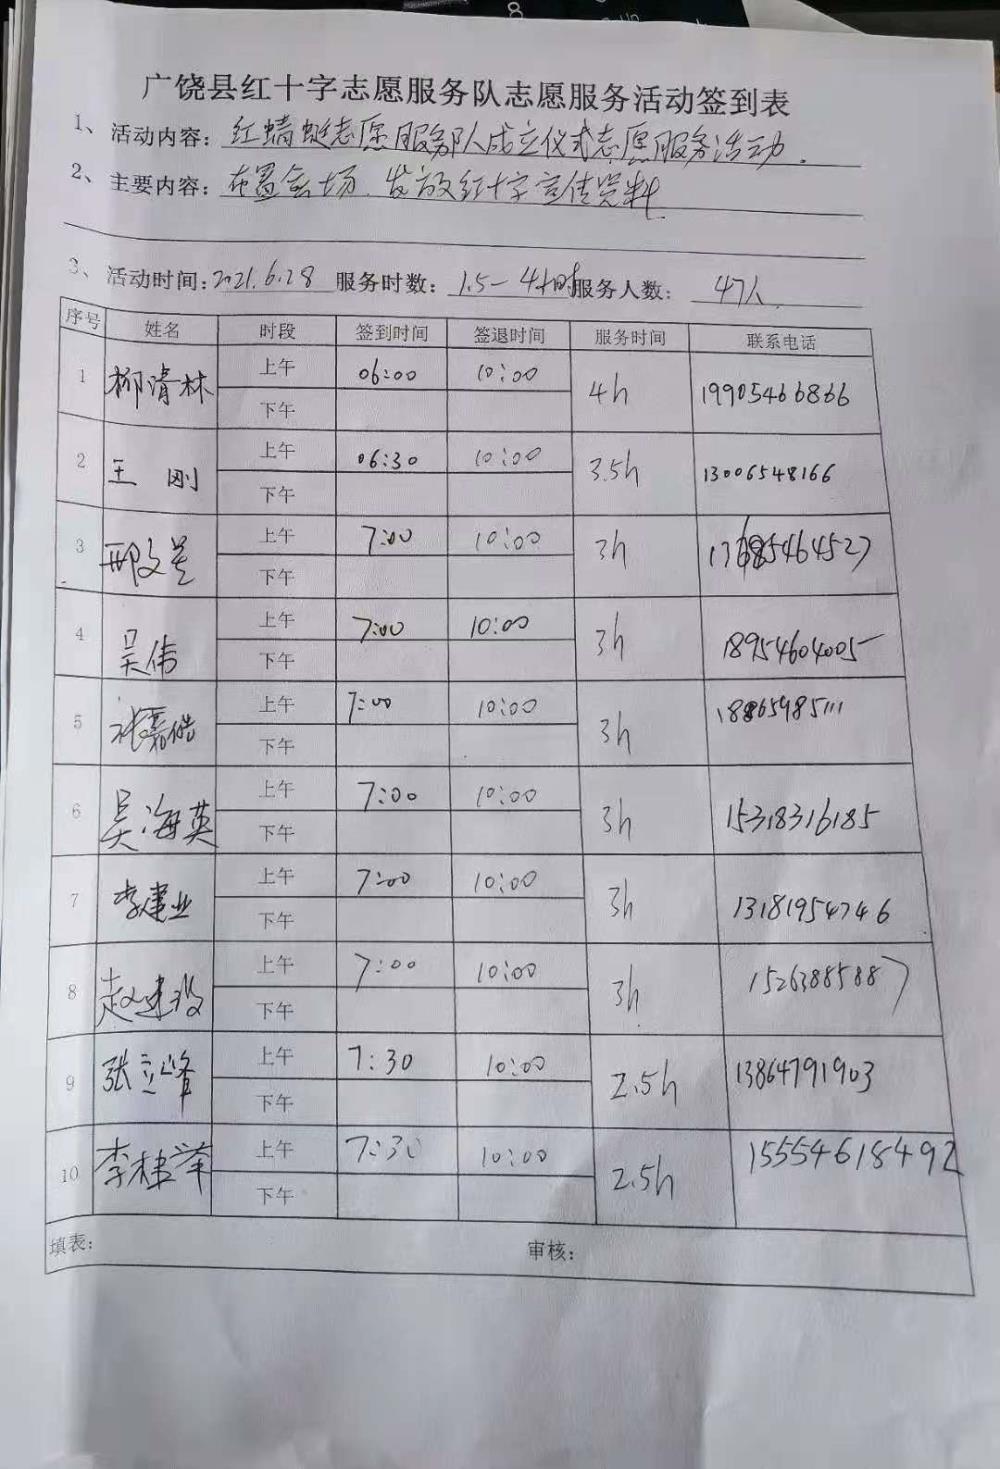 广饶县红十字志愿服务队志愿服务活动签到表
1、活动内容：红蜻蜓志愿服务队成立仪式志愿服务活动.
2、主要内容：布置会场、发放红十字宣传资料
3、活动时间：2021.6.28 服务时数：1.5-4小时 服务人数：47人
序号 姓名 时段 签到时间 签退时间 服务时间 联系电话
1 柳清林 上午 06:00 10:00 4h 19905466866
下午
2 王刚 上午 06:30 10:00 3.5h 13006548166
下午
3 邢文 上午 7:00 10:00 3h
下午
4 吴伟 上午 7:00 10:00 3h 18954604005
下午
5 张嘉皓 上午 7:00 10:00 3h 18865985111
下午
6 吴海英 上午 7:00 10:00 3h 15318316185
下午
7 李建业 上午 7:00 10:00 3h 13181954746
下午
8 赵建 上午 7:00 10:00 3h 15263885887
下午
9 张立峰 上午 7:30 10:00 2.5h 13864791903
下午
10 李桂荣 上午 7:30 10:00 2.5h 15554618492
下午
填表： 审核：